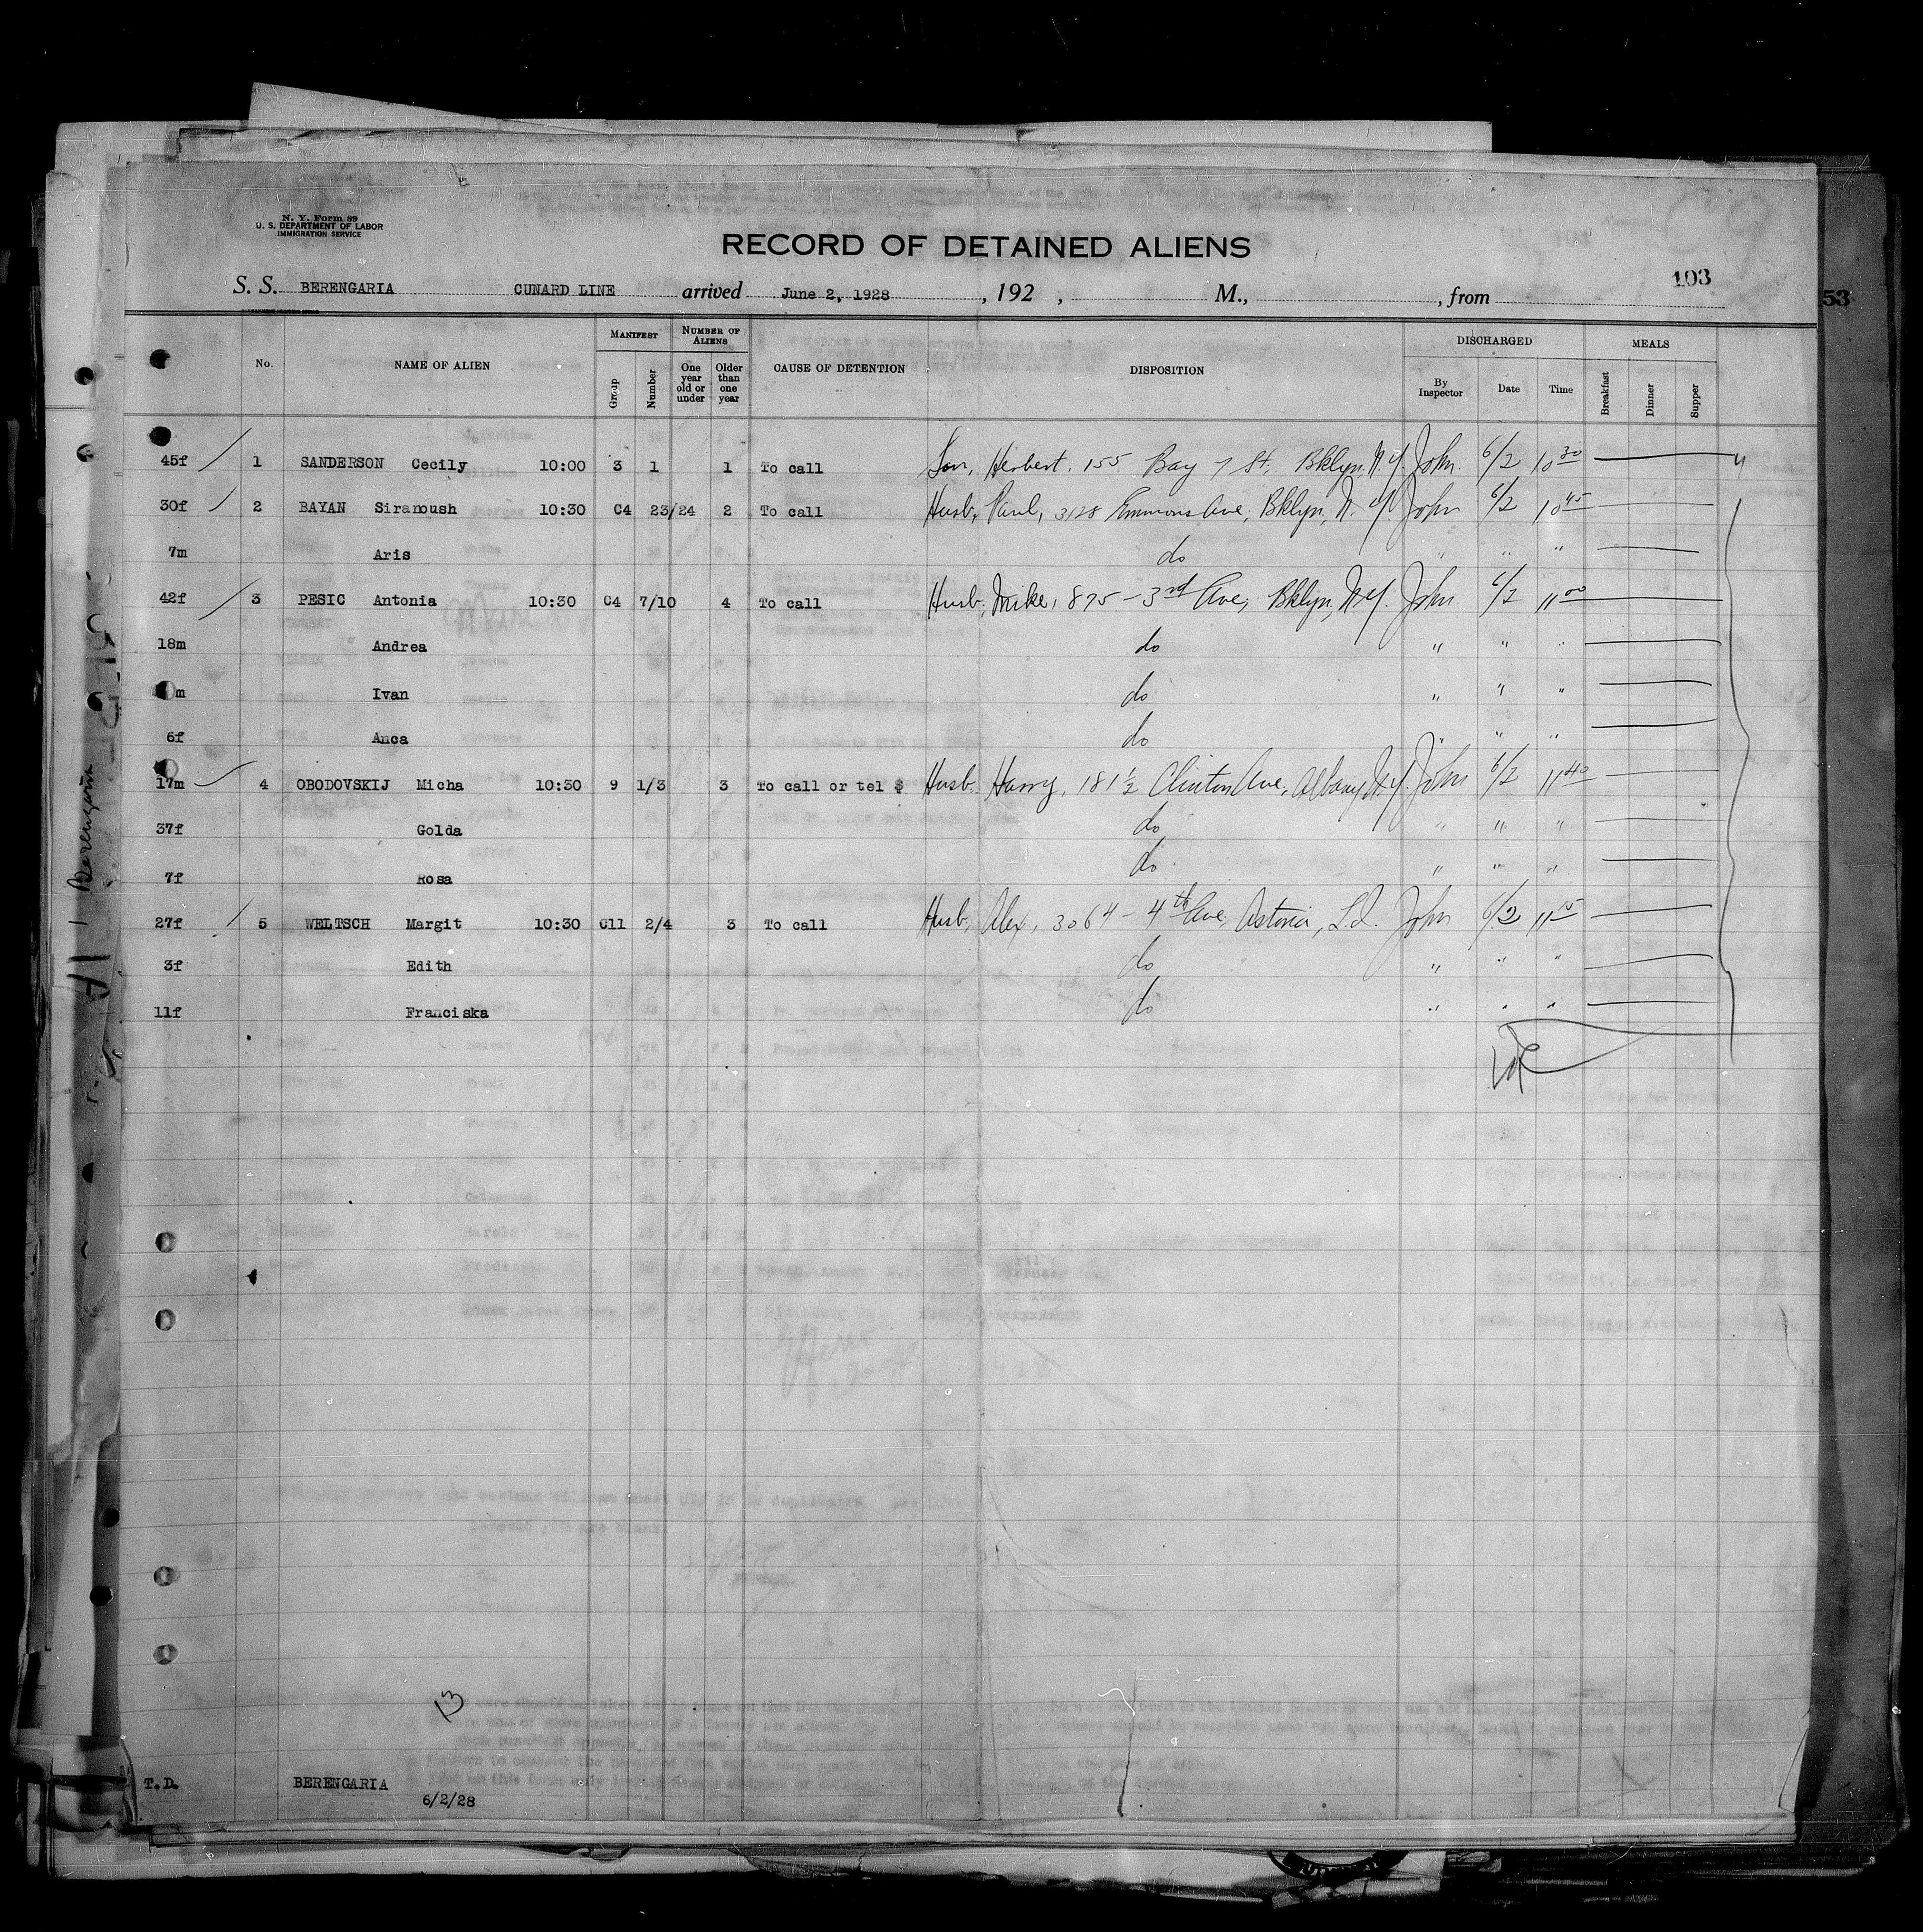 N. Y. Form 89
U. S. DEPARTMENT OF LABOR
IMMIGRATION SERVICE
RECORD OF DETAINED ALIENS
103
S. S. BERENGARIA CUNARD LINE arrived June 2, 1928 , 192 , M., , from
53
No. NAME OF ALIEN MANIFEST Group Number NUMBER OF ALIENS One year old or under Older than one year CAUSE OF DETENTION DISPOSITION DISCHARGED By Inspector Date Time MEALS Breakfast Dinner Supper
45f 1 SANDERSON Cecily 10:00 3 1 1 To call Son, Herbert, 155 Bay 7 St, Bklyn, N.Y. John 6/2 10 30
30f 2 BAYAN Siranoush 10:30 C4 23/24 2 To call Husb, Paul, 3128 Emmons Ave, Bklyn, N.Y. John 6/2 10 45
7m Aris do " " "
42f 3 PESIC Antonia 10:30 C4 7/10 4 To call Husb, Mike, 875 - 3rd Ave, Bklyn, N.Y. John 6/2 11 00
18m Andrea do " " "
m Ivan do " " "
6f Anca do " " "
17m 4 OBODOVSKIJ Micha 10:30 9 1/3 3 To call or tel $ Husb. Harry, 181 1/2 Clinton Ave, Albany N.Y. John 6/2 11 40
37f Golda do " " "
7f Rosa do " " "
27f 5 WELTSCH Margit 10:30 C11 2/4 3 To call Husb, Alex, 3064 - 4th Ave, Astoria, L.I. John 6/2 11 15
3f Edith do " " "
11f Franciska do " " "
13
T.D. BERENGARIA
6/2/28
Berengaria